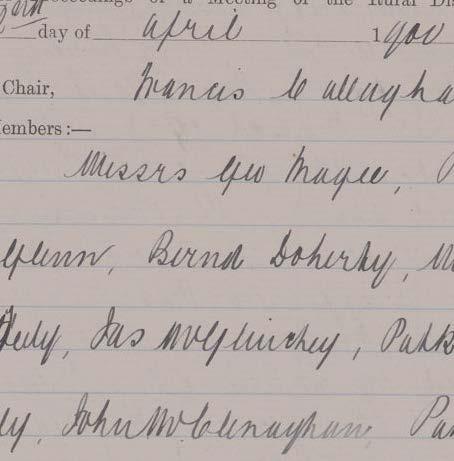 Proceedings of a Meeting of the Rural Dis
day of April 1900
Chair, Francis Callagha
Members:—
Messrs Geo Magee, P
Glenn, Bernd Doherty, M
Jas McGlinchey, Patk
ly, John McClenaghan Pat